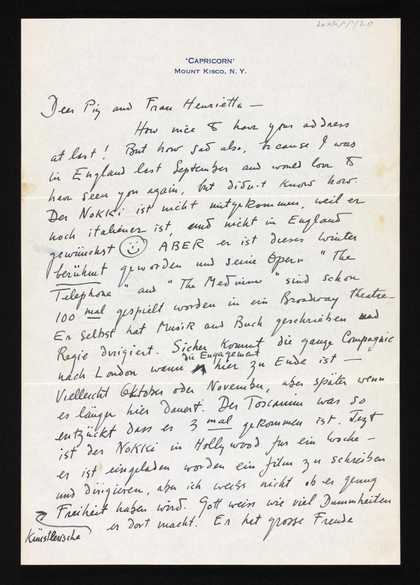 'CAPRICORN'
MOUNT KISCO, N. Y.
Dear Pig and Frau Henrietta —
How nice to have your address
at last! But how sad also, because I was
in England last September and would love to
have seen you again, but didn't know how.
Der Nokki ist nicht mitgekommen, weil er
noch italiener ist, und nicht in England
gewünscht ABER er ist dieses Winter
berühmt geworden und seine Opern "The
Telephone" and "The Medium" sind schon
100 mal gespielt worden in ein Broadway theatre —
Er selbst hat Musik and Buch geschrieben und
Regie dirigiert. Sicher kommt die ganze Compagnie
nach London wenn die Engagement hier zu Ende ist —
Vielleicht Oktober oder November, aber später wenn
es länger hier dauert. Der Toscanini war so
entzückt dass er 3 mal gekommen ist. Jezt
ist der Nokki in Hollywood für ein woche —
er ist eingeladen worden ein film zu schreiben
und dirigieren, aber ich weiss nicht ob er genug
Künstlerische Freiheit haben wird. Gott weiss wie viel Dummheiten
er dort macht. Er het grosse Freude